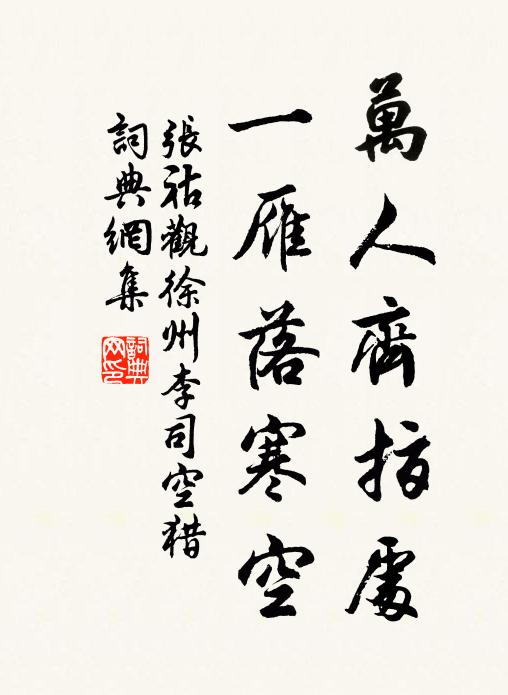 萬人齊指處
一雁落寒空
張祜觀徐州李司空猎
詞典網集
詞典网印